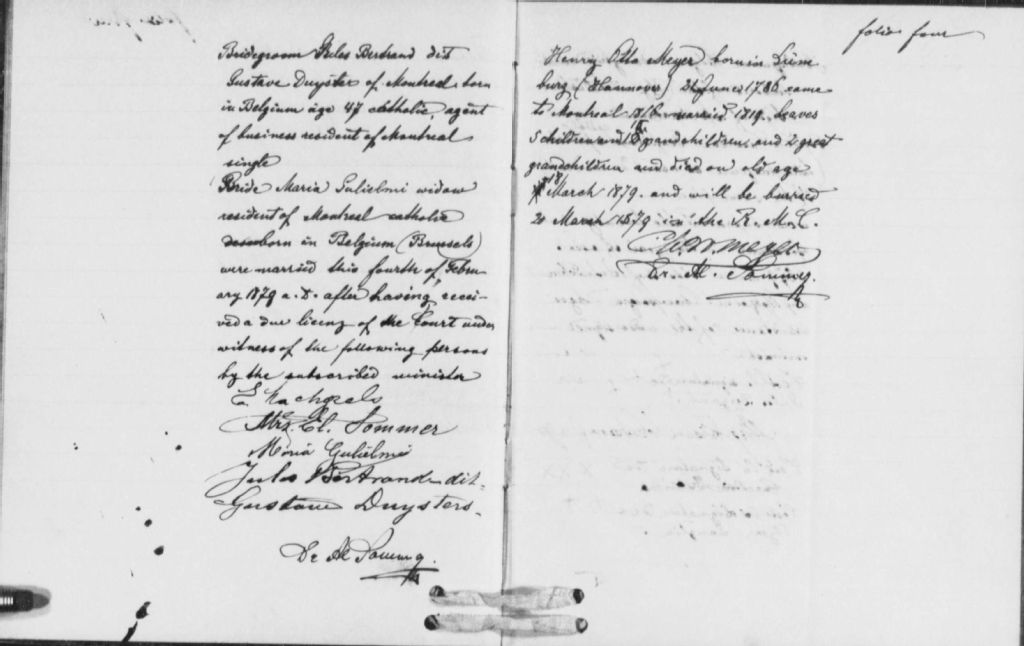 Bridegroom Jules Bertrand dit
Gustave Duyster of Montreal, born
in Belgium age 47 catholic, agent
of business resident of Montreal
single
Bride Maria Gulielmi widow
resident of Montreal catholic
born in Belgium (Brussels)
were married this fourth of Febru
ary 1879 a. D. after having recei-
ved a due licenz of the Court under
witness of the following persons
by the subscribed minister
Mrs. El. Sommer
Maria Gulielmi
Jules Bertrand dit
Gustave Duysters.
Dr Al
folio four
Henry Otto Meyer born in Lüne
burg (Hannover) 21 June 1786 came
to Montreal 1816 married 1819. leaves
5 children and 18 grandchildren, and 2 great
grandchildren and died on old age
18 March 1879. and will be burried
20 March 1879 in the R. M. C.
Meyer
Dr. Al.